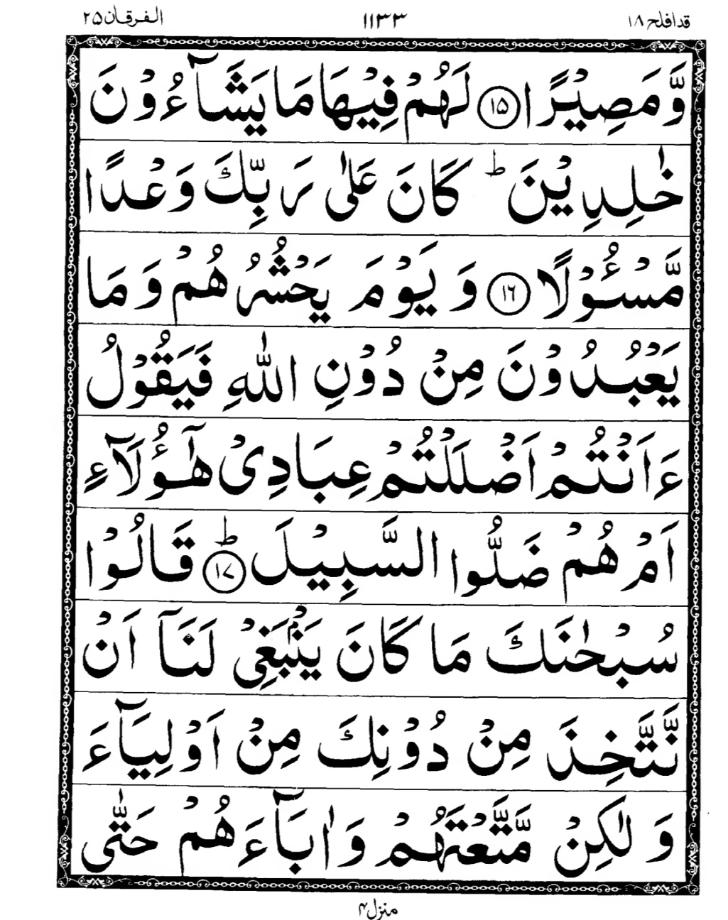 قدافلح ۱۸ ۱۱۳۳ الفرقان ۲۵
وَّمَصِيْرًا ⑮ لَهُمْ فِيْهَا مَا يَشَآءُوْنَ
خٰلِدِيْنَ ؕ كَانَ عَلٰى رَبِّكَ وَعْدًا
مَّسْـُٔوْلًا ⑯ وَيَوْمَ يَحْشُرُهُمْ وَمَا
يَعْبُدُوْنَ مِنْ دُوْنِ اللّٰهِ فَيَقُوْلُ
ءَاَنْتُمْ اَضْلَلْتُمْ عِبَادِىْ هٰٓؤُلَآءِ
اَمْ هُمْ ضَلُّوا السَّبِيْلَ ؕ ⑰ قَالُوْا
سُبْحٰنَكَ مَا كَانَ يَنْۢبَغِىْ لَنَآ اَنْ
نَّتَّخِذَ مِنْ دُوْنِكَ مِنْ اَوْلِيَآءَ
وَلٰكِنْ مَّتَّعْتَهُمْ وَاٰبَآءَهُمْ حَتّٰى
منزل ۴